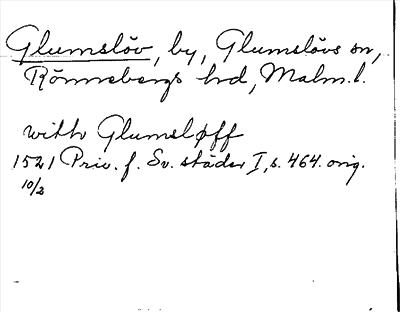 Glumslöv, by, Glumslövs sn,
Rönnebergs hd, Malm. l.
witth Glumsløff
1521 Priv. f. Sv. städer I, s. 464. orig.
10/2